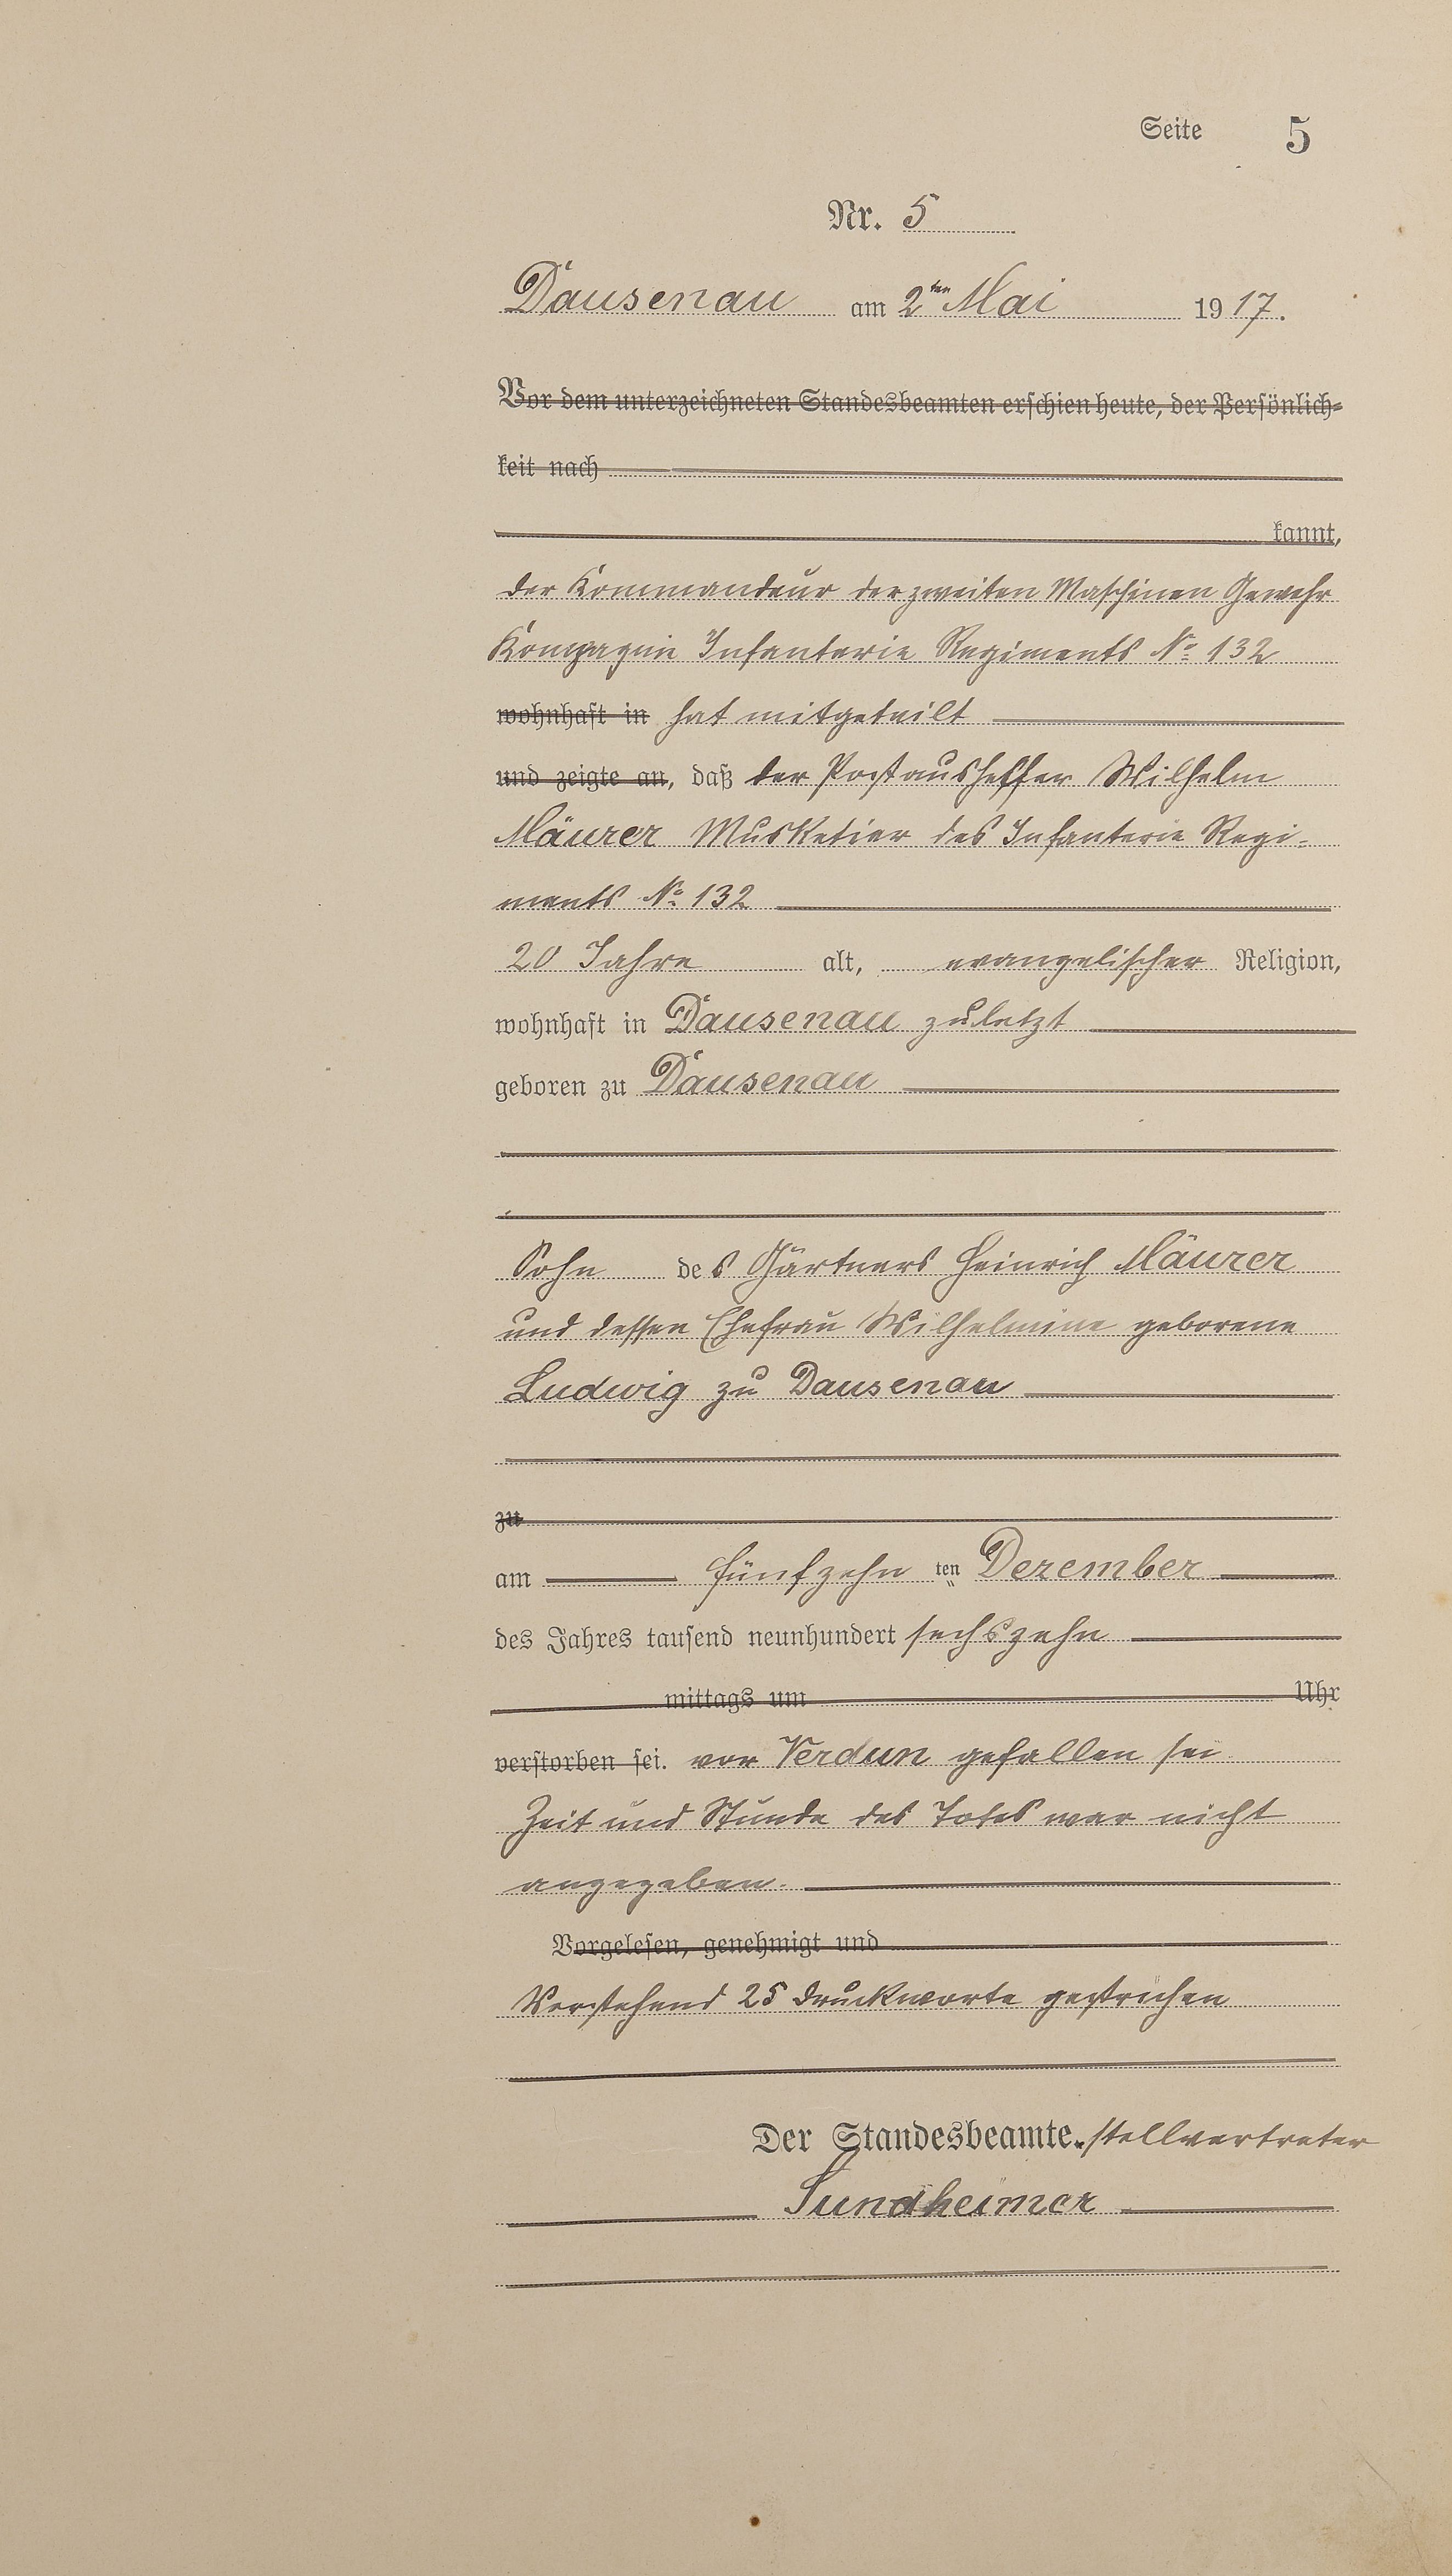 Seite 5
Nr. 5
Dausenau am 2ten Mai 1917.
Vor dem unterzeichneten Standesbeamten erschien heute, der Persönlich-
keit nach
kannt,
der Kommandeur der zweiten Maschinen Gewehr
Kompagnie Infanterie Regiments No 132
wohnhaft in hat mitgeteilt
und zeigte an, daß der Postaushelfer Wilhelm
Mäurer Musketier des Infanterie Regi-
ments No 132
20 Jahre alt, evangelischer Religion,
wohnhaft in Dausenau zuletzt
geboren zu Dausenau
Sohn des Gärtners Heinrich Mäurer
und dessen Ehefrau Wilhelmine geborene
Ludwig zu Dausenau
zu
am fünfzehn ten Dezember
des Jahres tausend neunhundert sechszehn
mittags um Uhr
verstorben sei. vor Verdun gefallen sei
Zeit und Stunde des Todes war nicht
angegeben.
Vorgelesen, genehmigt und
Vorstehend 25 Druckworte gestrichen
Der Standesbeamte. stellvertreter
Sundheimer